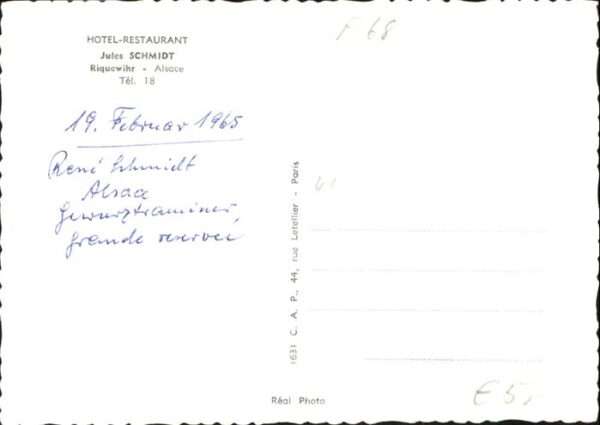 HOTEL-RESTAURANT
Jules SCHMIDT
Riquewihr - Alsace
Tél. 18
F 68
19. Februar 1965
René Schmidt
Alsace
Gewurztraminer,
grande reservee
1631 C. A. P., 44, rue Letellier - Paris
Réal Photo